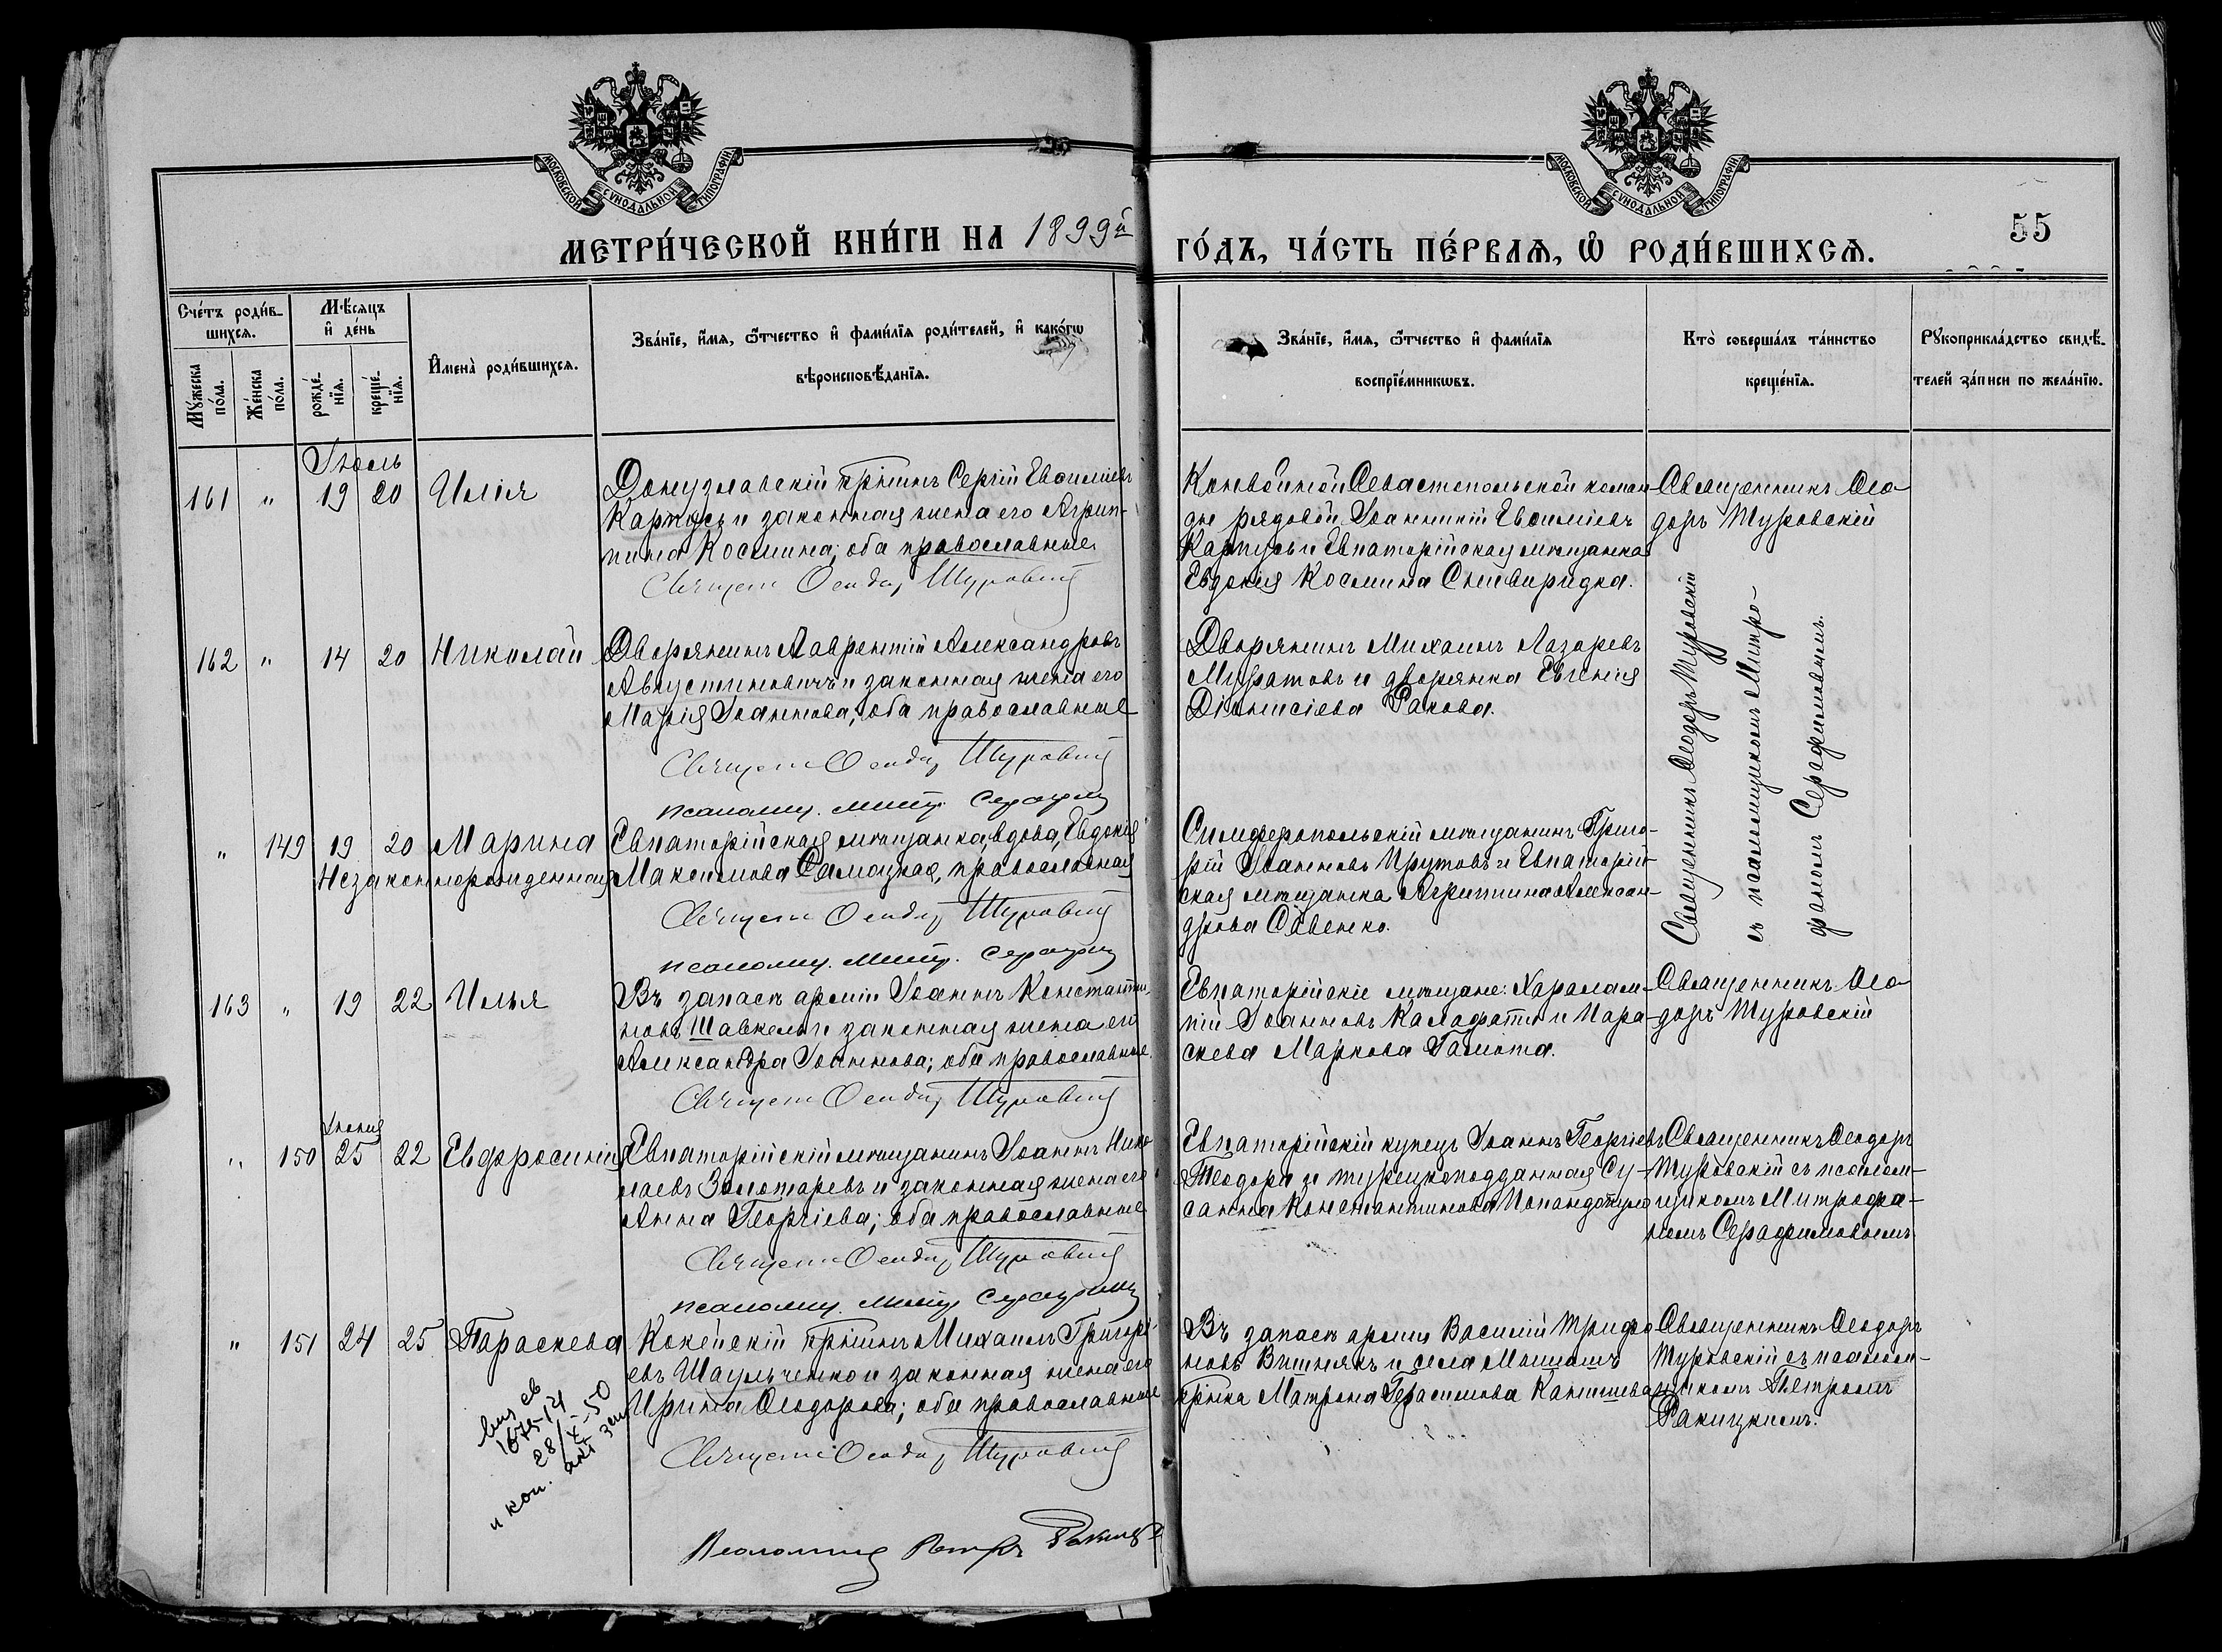 МОСКОВСКОЙ СУНОДАЛЬНОЙ ТИПОГРАФІИ
МОСКОВСКОЙ СУНОДАЛЬНОЙ ТИПОГРАФІИ
55
МЕТРИ́ЧЕСКОЙ КНИ́ГИ НА 1899й ГО́ДЪ, ЧА́СТЬ ПЕ́РВАѦ, Ѡ҆ РОДИ́ВШИХСѦ.
Сче́тъ роди́в-
шихсѧ.
Мѣ́сѧцъ
и҆ де́нь
Мꙋ́жеска по́ла.
Же́нска по́ла.
рожде́-нїѧ.
креще́-нїѧ.
И҆мена̀ роди́вшихсѧ.
Зва́нїе, и҆́мѧ, ѻ҆́тчество и҆ фами́лїѧ роди́телей, и҆ како́гѡ
вѣроисповѣ́данїѧ.
Зва́нїе, и҆́мѧ, ѻ҆́тчество и҆ фами́лїѧ
воспрїе́мникѡвъ.
Кто̀ соверша́лъ та́инство
креще́нїѧ.
Рꙋкоприкла́дство свидѣ́-
телей за́писи по жела́нїю.
Іюль
161 " 19 20 Илія
Донузлавскій кр̃нинъ Сергій Евѳиміевъ
Карпусь и законная жена его Агрип-
пина Космина; оба православные.
Священ Ѳеодоръ Туровскій
Конвойной Севастопольской коман-
ды рядовой Іоанникій Евѳиміевъ
Карпусь и Евпаторійская мѣщанка
Евдокія Космина
Священникъ Ѳео-
доръ Туровскій
162 " 14 20 Николай
Дворянинъ Лаврентій Александровъ
Августиновичъ и законная жена его
Марія Іоаннова; оба православные
Священ Ѳеодоръ Туровскій
псаломщ. Митр. Серафим
Дворянинъ Михаилъ Лазаревъ
Муратовъ и дворянка Евгенія
Діонисіева Ракова.
Священникъ Ѳеодоръ Туровскій
съ псаломщикомъ Митро-
фаномъ Серафимовымъ.
" 149 19 20 Марина
Незаконнорожденная
Евпаторійская мѣщанка, вдова, Евдокія
Максимова Самоцкая, православная
Священ Ѳеодоръ Туровскій
псаломщ. Митр. Серафим
Симферопольскій мѣщанинъ Григо-
рій Іоанновъ Прутовъ и Евпаторій-
ская мѣщанка Агриппина Алексан-
дрова Савенко.
163 " 19 22 Илья
Въ запасѣ арміи Іоаннъ Константи-
новъ Шавкелъ и законная жена его
Александра Іоаннова; оба православные.
Священ Ѳеодоръ Туровскій
Евпаторійскіе мѣщане: Харалам-
пій Іоанновъ Калафати и Пара-
скева Маркова Гамота.
Священникъ Ѳео-
доръ Туровскій
" 150 Іюня 25 22 Евфросинія
Евпаторійскій мѣщанинъ Іоаннъ Нико-
лаевъ Золотаревъ и законная жена его
Анна Георгіева; оба православные
Священ Ѳеодоръ Туровскій
псаломщ. Митр Серафим
Евпаторійскій купецъ Іоаннъ Георгіевъ
Теодори и турецкоподданная Су-
санна Константинова
Священникъ Ѳеодоръ
Туровскій съ псалом-
щикомъ Митрофа-
номъ Серафимовымъ
" 151 24 25 Параскева
Кокейскій кр̃нинъ Михаилъ Григорі-
евъ Шаульченко и законная жена его
Ирина Ѳеодорова; оба православные
Священ Ѳеодоръ Туровскій
Псаломщ Петръ
Въ запасѣ арміи Василій Трифо
новъ Вишнякъ и села
кр̃нка Матрона Герасимова
Священникъ Ѳеодоръ
Туровскій съ псалом-
щикомъ Петромъ
Ракицкимъ.
28/X-50
и коп. акт